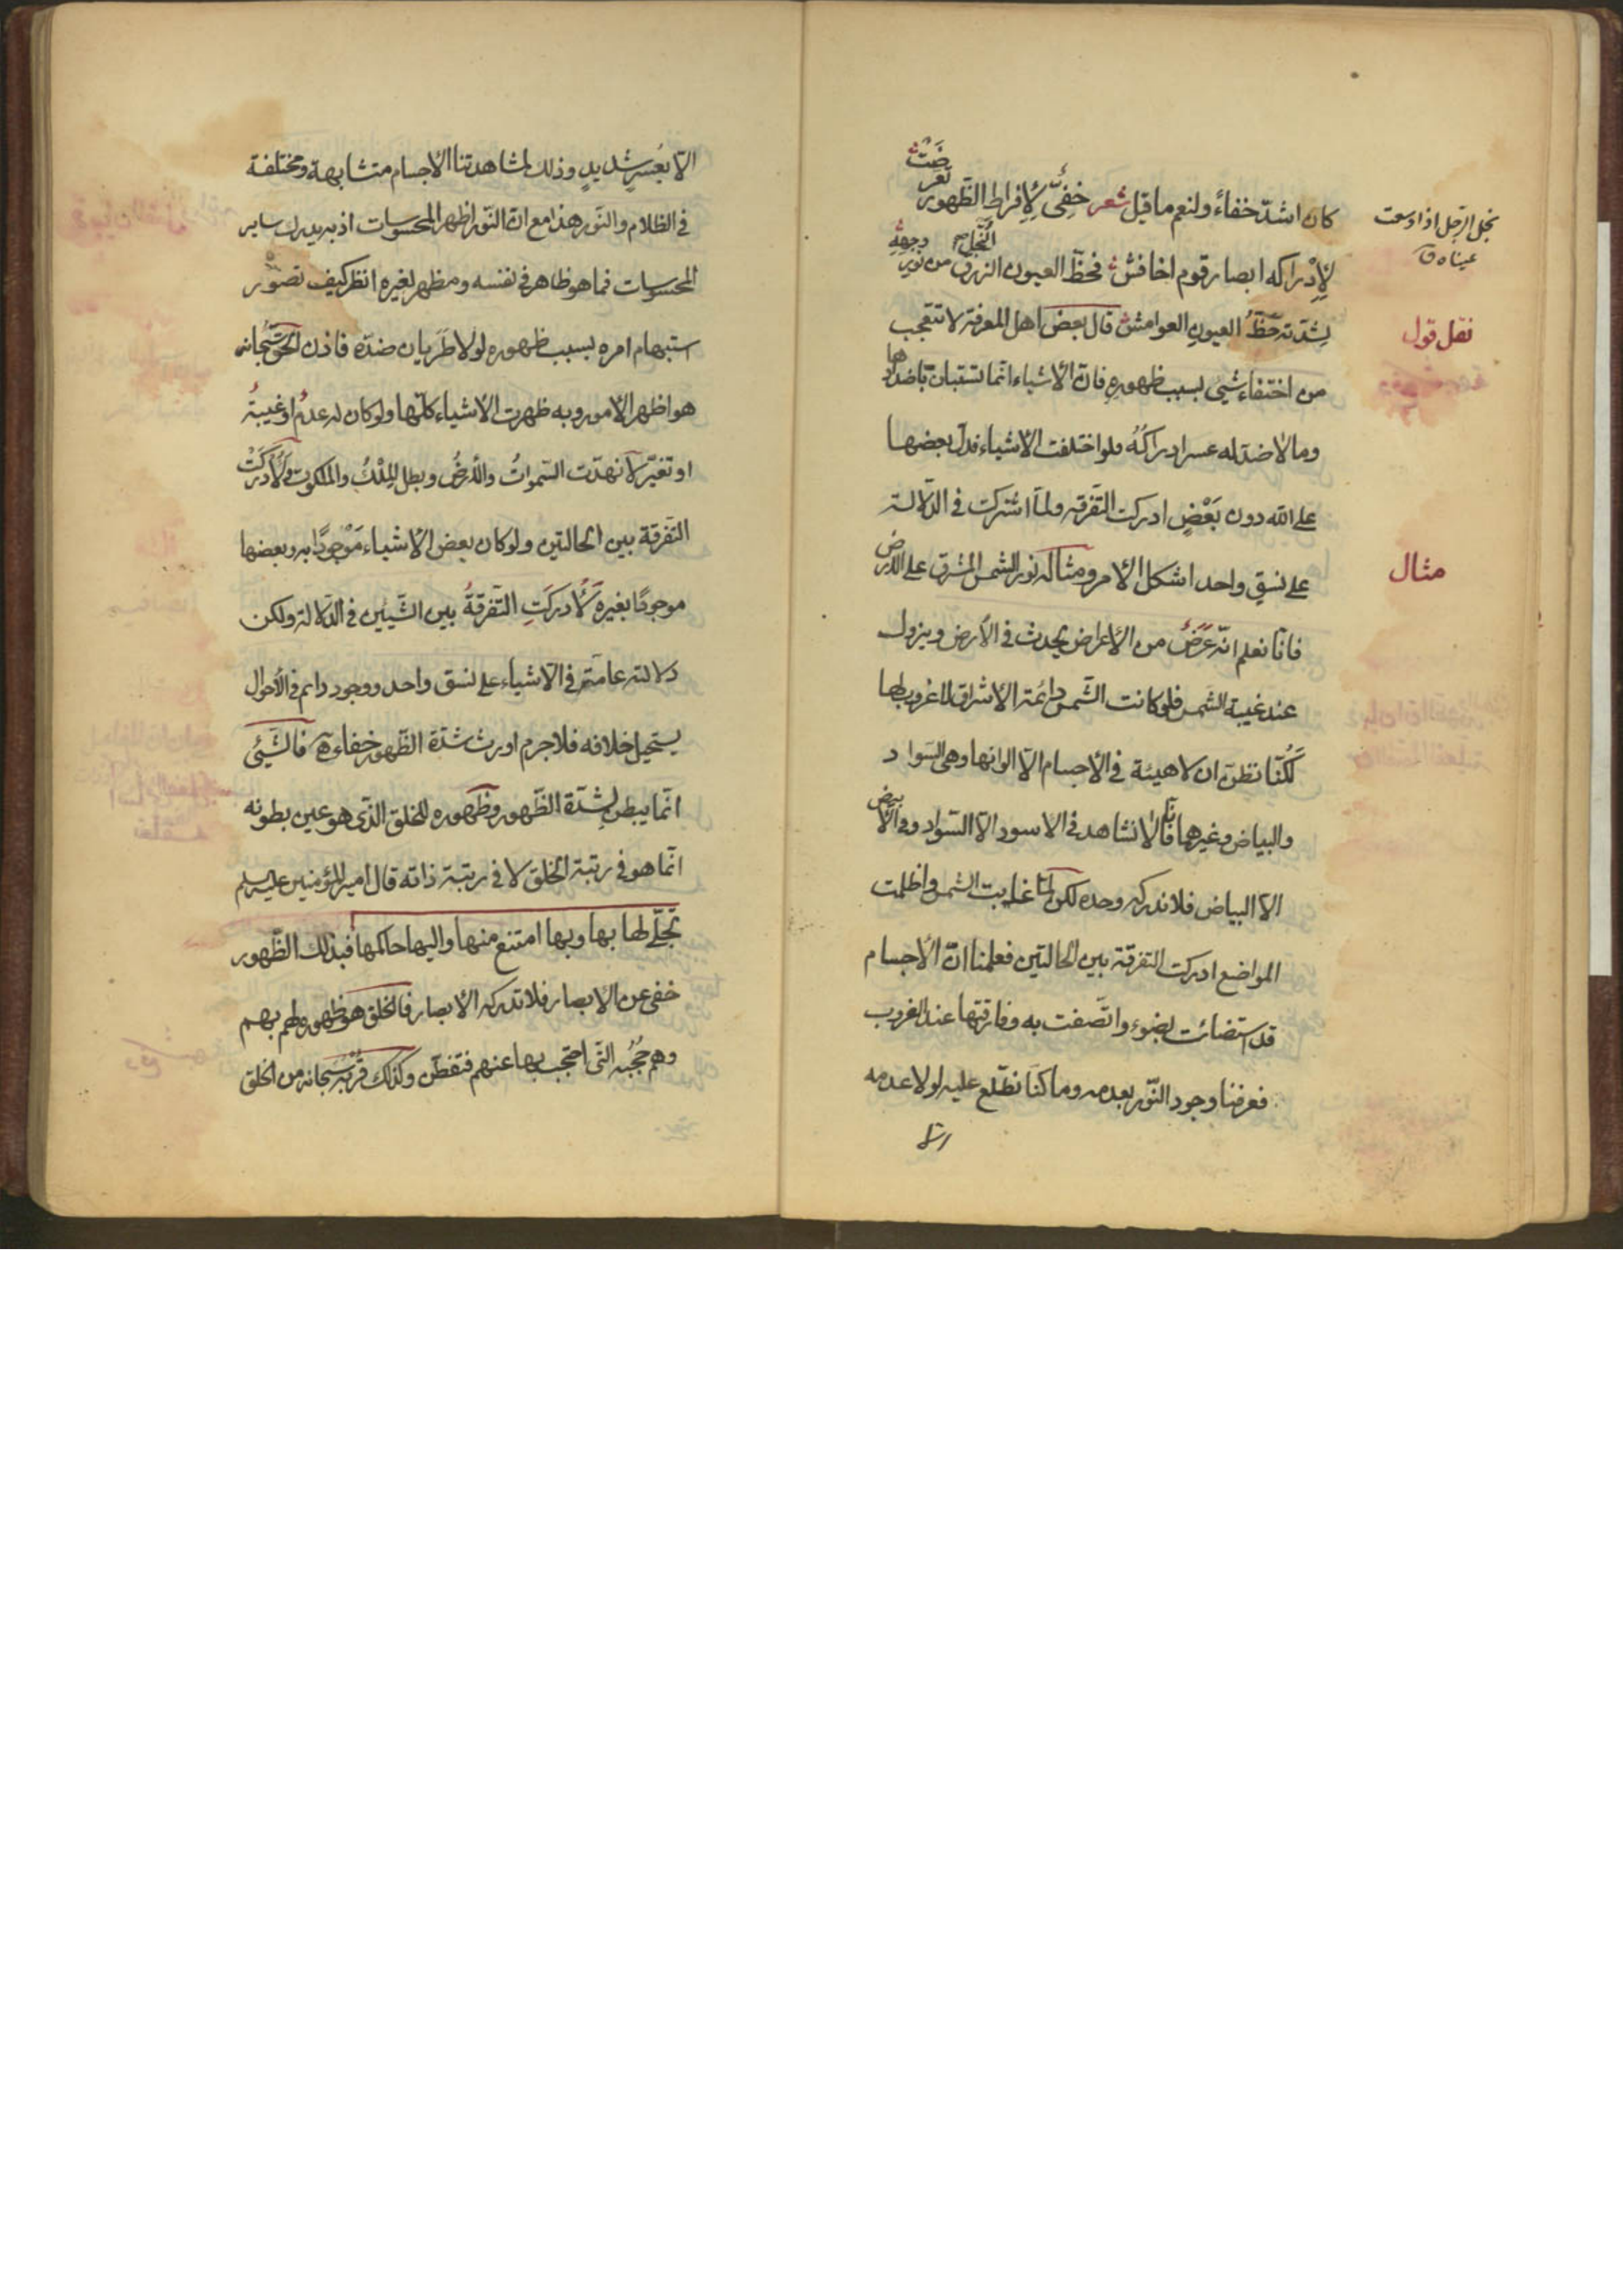 كان اشدّ خفاءً ولنعم ما قيل شعر خَفِيٌّ لِإِفراطِ الظّهور تعرّضت
لِإِدْراكه ابصار قوم اخافش فحظّ العيون الزرق من نور وجهه
لِشِدّته حَظُّ العيون العوامش قال بعض اهل المعرفة لا تتعجب
من اختفاء شيئ بسبب ظهوره فانّ الاشياء انّما تستبان باضدادها
وما لا ضدّ له عسر ادراكُهُ فلو اختلفت الاشياء فدلّ بعضها
على الله دون بَعْضٍ ادركت التّفرقه ولمّا اشتركت في الدّلالة
على نسقٍ واحد اشكل الامر ومثاله نور الشمس المشرق على الارض
فانّا نعلم انّه عَرَضٌ من الاعراض يحدث في الارض ويزول
عند غيبة الشمس فلو كانت الشّمس دائمة الاشراق لا غروب لها
لَكُنّا نظنّ ان لا هيئة في الاجسام الّا الوانها وهي السّواد
والبياض وغيرهما فانّا لا نشاهد في الاسود الّا السّواد وفي الابيض
الّا البياض فلا ندركه وحده لكن لمّا غابت الشمس واظلمت
المواضع ادركت التفرقة بين الحالتين فعلمنا انّ الاجسام
قد استضائت بضوء واتّصفت به وفارقتها عند الغروب
فعرفنا وجود النّور بعدمه وما كنّا نطّلع عليه لولا عدمه
النُّجْل
نجل الرّجل اذا وسعت
عيناه ق
نقل قول
مثال
الّا بعُسرٍ شديدٍ وذلك لمشاهدتنا الاجسام متشابهة ومختلفة
في الظلام والنّور هذا مع انّ النّور اظهر المحسوسات اذ به يدرك ساير
المحسوسات فما هو ظاهر في نفسه ومظهر لغيره انظر كيف تصوّر
استبهام امره بسبب ظهوره لولا طَرَيان ضدّه فاذن الحقّ سُبحانه
هو اظهر الامور وبه ظهرت الاشياء كلّها ولو كان له عدمٌ او غيبةٌ
او تغيّر لانهدّت السّمواتُ والارضُ وبطل المِلْكُ والملكوت ولَاُدركَتْ
التّفرقة بين الحالتين ولو كان بعض الاشياء مَوْجودًا به وبعضها
موجودًا بغيره لَاُدركَتِ التّفرقةُ بين الشّيئين في الدّلالة ولكن
دلالته عامّة في الاشياء على نسق واحد ووجوده دايم في الاحوال
يستحيل خلافه فلا جرم اورث شدّة الظّهور خفاءه فالشّيئ
انّما يبطن لِشدّة الظّهور وظهوره للخلق الّذي هو عين بطونه
انّما هو في رتبة الخلق لا في رتبة ذاته قال امير المؤمنين عليه السلم
تجلّى لها بها وبها امتنع منها واليها حاكمها فبذلك الظّهور
خفى عن الابصار فلا تدركه الابصار فالخلق هو ظهوره لهم بهم
وهم حُجُبه الّتي احتجب بها عنهم فتفطّن وكذلك قُرْبُه سبحانه من الخلق